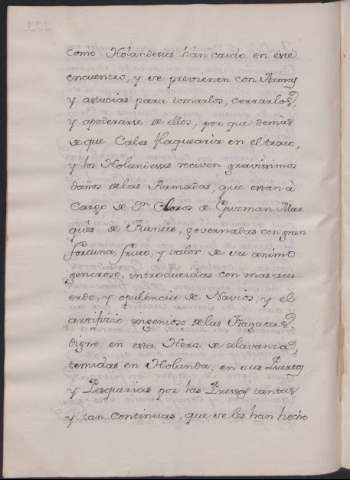 como Holandeses hán caido en este
encuentro, y se previenen con Armas
y astucias para tomarlos, cerrarlos,
y apoderarse de ellos, por que demas
de que Cales flaquearia en el trato,
y los Holandeses reciven gravissimos
daños de las Armadas, que están à
Cargo de Dn. Carlos de Guzman Mar
qués de Fuentes, governadas con gran
fortuna fruto, y valor de su animo
generoso, introducidas con mas su
erbo, y opulencia de Navios, y el
artificio ingenioso de las Fragatas
digno, en esta Hera de alavanza,
temidas en Holanda, en sus Puertos
y Pesquerias por las Pressas tantas
y tan continuas, que se les han hecho